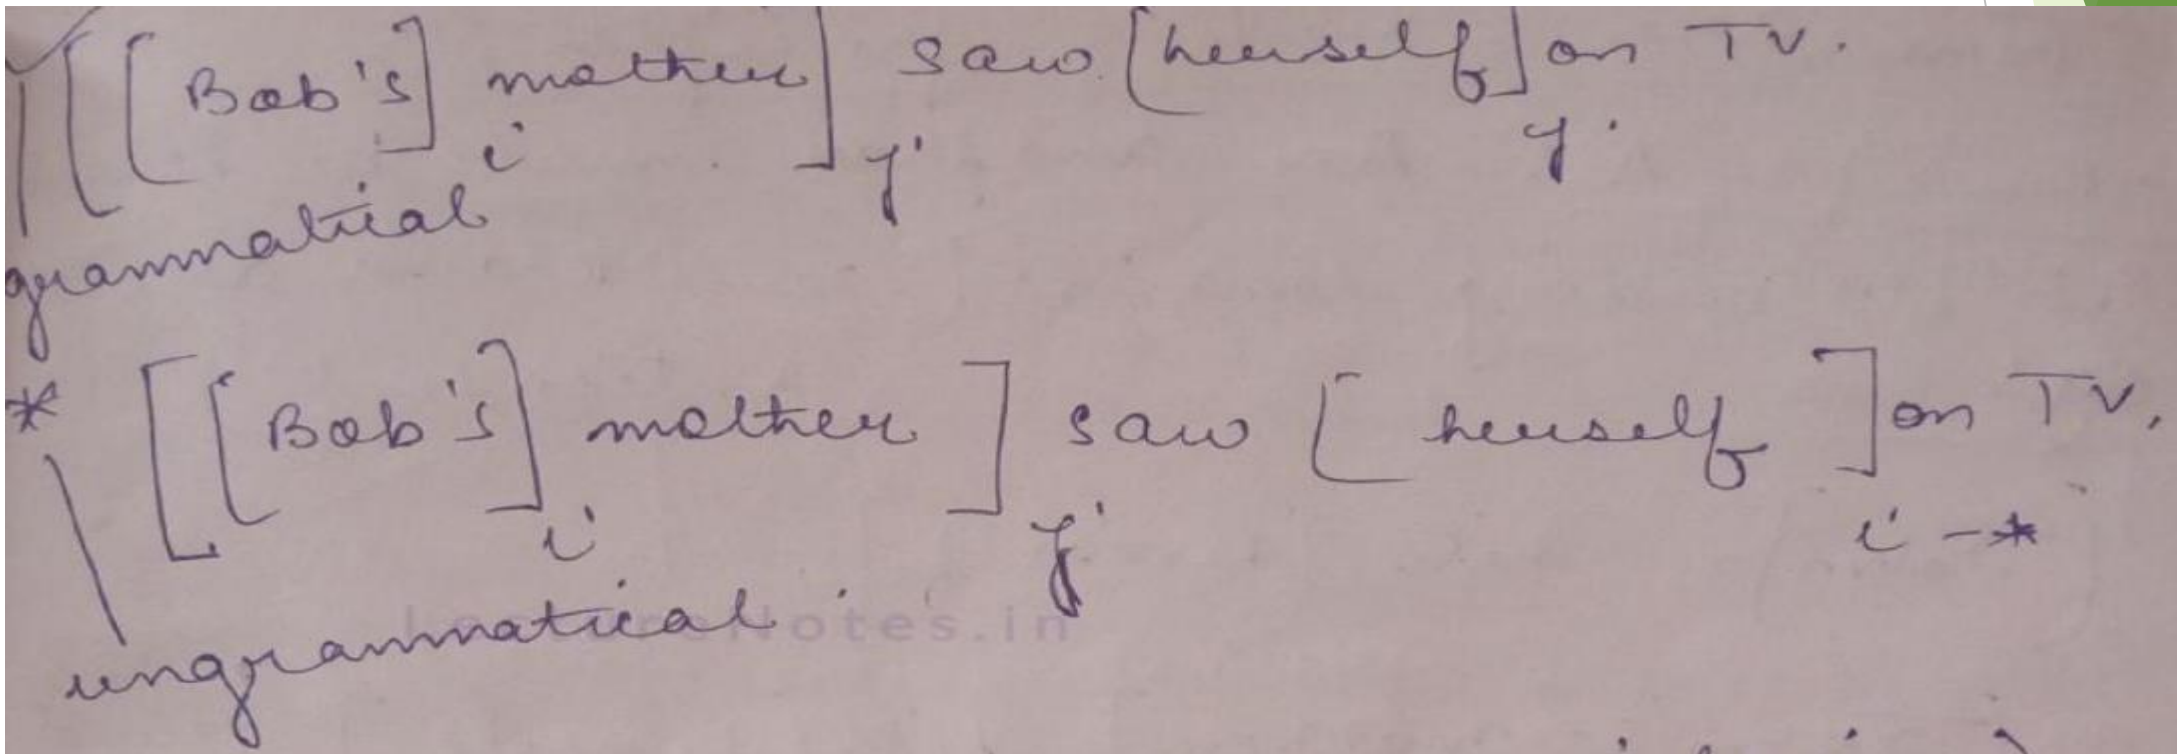 ✓ [[Bob's]i mother]j saw [herself]j on TV.
grammatical
* [[Bob's]i mother]j saw [herself]i-* on TV.
ungrammatical
LectureNotes.in